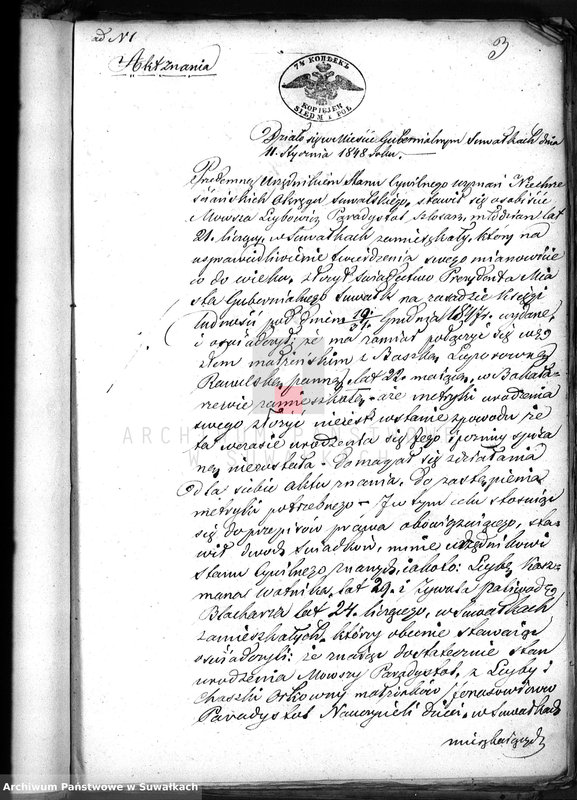 ad N 1
3
Akt znania
7½ KOPIEJEK
KOPIEJEK
SIEDM I PÓŁ
Działo się w Mieście Gubernialnym Suwałkach dnia
11. Stycznia 1848 roku.
Przedemną Urzędnikiem Stanu Cywilnego wyznań Niechrze
ściańskich Okręgu Suwalskiego, stawił się osobiście
Mowsza Leybowicz Paradystal młodzian lat
21. liczący, w Suwałkach zamieszkały, który na
usprawiedliwienie twierdzenia swego mianowicie
co do wieku, złożył świadectwo Prezydenta Mia
sta Gubernialnego Suwałk na zasadzie Księgi
ludności pod dniem 19/31. Grudnia 1847 r. wydane,
i oświadczył; że ma zamiar połączyć się węz
łem małżeńskim z Baszką
panną, lat 22. mającą, w Bakała
rzewie zamieszkałą, ale metryki urodzenia
swego złożyć nie jest w stanie z powodu że
ta w czasie urodzenia się Jego
ną nie została. Domagał się zdziałania
dla siebie aktu znania, do zastąpienia
metryki potrzebnego – W tym celu stosując
się do przepisów prawa obowiązującego, sta
wił dwóch świadków, mnie urzędnikowi
Stanu Cywilnego znanych, jakoto: Leybę
lat 29. i
Blacharza lat 24. liczącego, w Suwałkach
zamieszkałych, którzy obecnie stawając
oświadczyli: że znając dostatecznie stan
urodzenia Mowszy Paradystal, z Leyby i
Chaszki małżonków
Paradystal Nauczycieli Dzieci, w Suwałkach
mieszkających
ARCHIWUM PAŃSTWOWE
W SUWAŁKACH
Archiwum Państwowe w Suwałkach